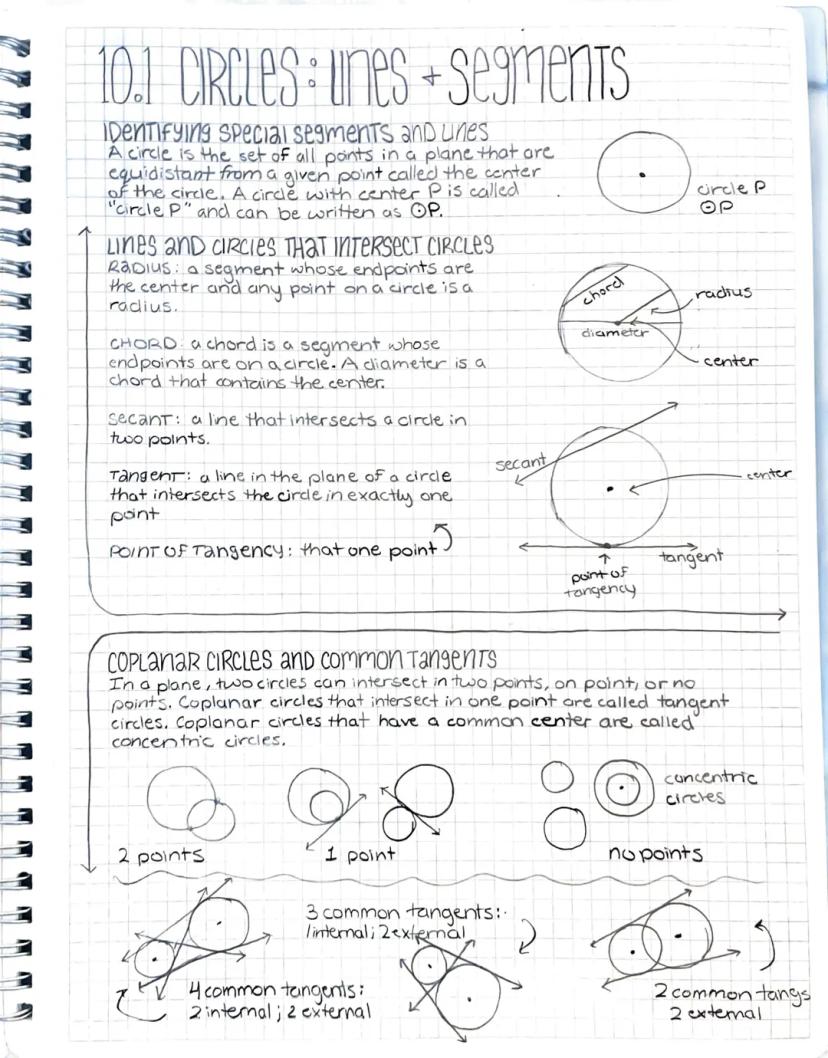 10.1 CIRCLES: LINES + SEGMENTS
IDENTIFYING SPECIAL SEGMENTS AND LINES
A circle is the set of all points in a plane that are
equidistant from a given point called the center
of the circle. A circle with center P is called
"circle P" and can be written as ⊙P.
circle P
⊙P
LINES AND CIRCLES THAT INTERSECT CIRCLES
RADIUS: a segment whose endpoints are
the center and any point on a circle is a
radius.
chord
radius
diameter
center
CHORD: a chord is a segment whose
endpoints are on a circle. A diameter is a
chord that contains the center.
SECANT: a line that intersects a circle in
two points.
secant
center
TANGENT: a line in the plane of a circle
that intersects the circle in exactly one
point
POINT OF TANGENCY: that one point
tangent
point of
tangency
COPLANAR CIRCLES AND COMMON TANGENTS
In a plane, two circles can intersect in two points, on point, or no
points. Coplanar circles that intersect in one point are called tangent
circles. Coplanar circles that have a common center are called
concentric circles.
concentric
circles
2 points
1 point
no points
3 common tangents:
1internal; 2 external
4 common tangents:
2 internal; 2 external
2 common tangs
2 external